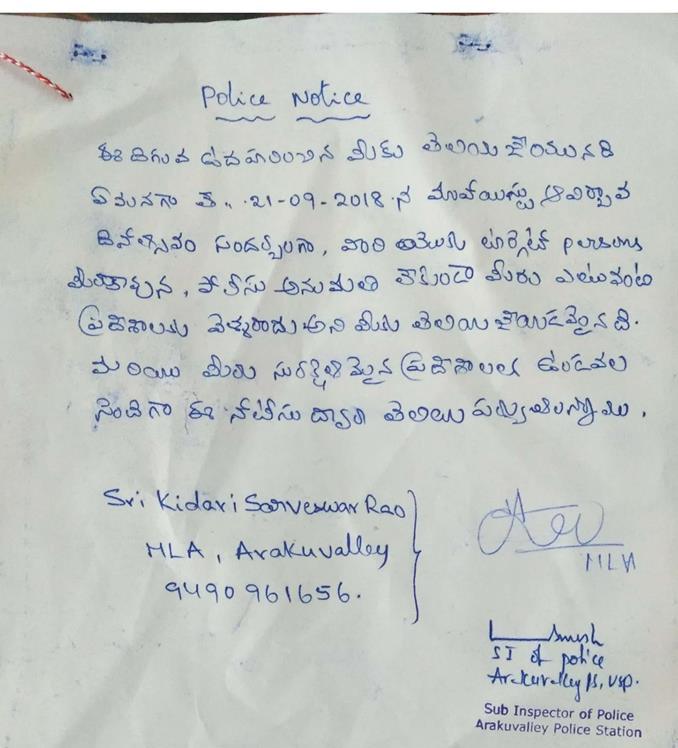 Police Notice
ఈ దిగువ ఉదహరించిన మీకు తెలియజేయునది
ఏమనగా తే.. 21-09-2018.న మావోయిస్టు ఆవిర్భావ
దినోత్సవం సందర్భంగా, వారి యొక్క టార్గెట్ persons
మీరు కావున, పోలీసు అనుమతి లేకుండా మీరు ఎటువంటి
ప్రదేశాలకు వెళ్ళరాదు అని మీకు తెలియజేయడమైనది.
మరియు మీరు సురక్షితమైన ప్రదేశాలలో ఉండవల
సిందిగా ఈ నోటీసు ద్వారా తెలియ పర్చుచున్నాము.
Sri Kidari Sarveswar Rao
MLA, Arakuvalley
9490961656.
MLA
SI of police
Arakuvalley PS, VSP.
Sub Inspector of Police
Arakuvalley Police Station